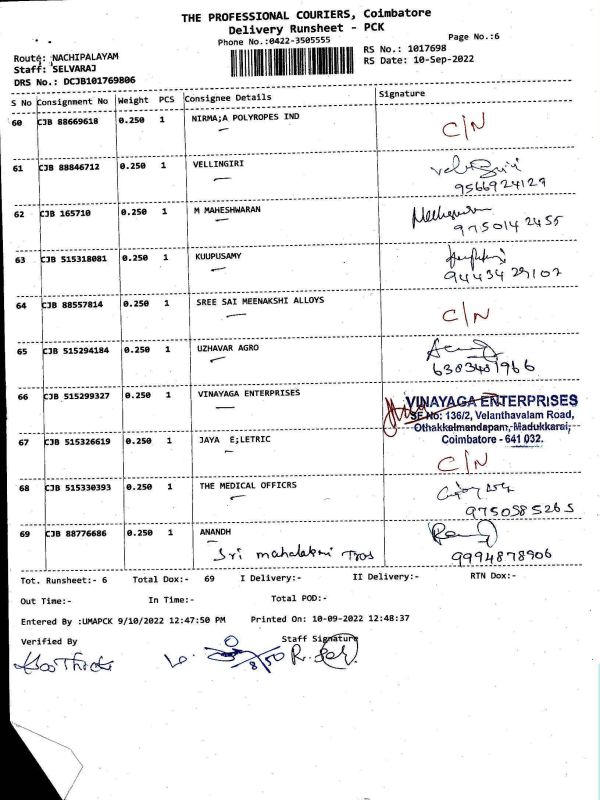 THE PROFESSIONAL COURIERS, Coimbatore
Delivery Runsheet - PCK
Phone No.:0422-3505555
Page No.:6
Route: NACHIPALAYAM
RS No.: 1017698
Staff: SELVARAJ
RS Date: 10-Sep-2022
DRS No.: DCJB101769806
S No Consignment No Weight PCS Consignee Details Signature
60 CJB 88669618 0.250 1 NIRMA;A POLYROPES IND C/N
61 CJB 88846712 0.250 1 VELLINGIRI
9566924129
62 CJB 165710 0.250 1 M MAHESHWARAN
9750142455
63 CJB 515318081 0.250 1 KUUPUSAMY
9443429102
64 CJB 88557814 0.250 1 SREE SAI MEENAKSHI ALLOYS C/N
65 CJB 515294184 0.250 1 UZHAVAR AGRO
6383481966
66 CJB 515299327 0.250 1 VINAYAGA ENTERPRISES
VINAYAGA ENTERPRISES
SF No: 136/2, Velanthavalam Road,
Othakkalmandapam, Madukkarai,
Coimbatore - 641 032.
67 CJB 515326619 0.250 1 JAYA E;LETRIC C/N
68 CJB 515330393 0.250 1 THE MEDICAL OFFICRS
9750585265
69 CJB 88776686 0.250 1 ANANDH
Sri mahalakmi Tros 9994878906
Tot. Runsheet:- 6 Total Dox:- 69 I Delivery:- II Delivery:- RTN Dox:-
Out Time:- In Time:- Total POD:-
Entered By :UMAPCK 9/10/2022 12:47:50 PM Printed On: 10-09-2022 12:48:37
Verified By Staff Signature
8/50